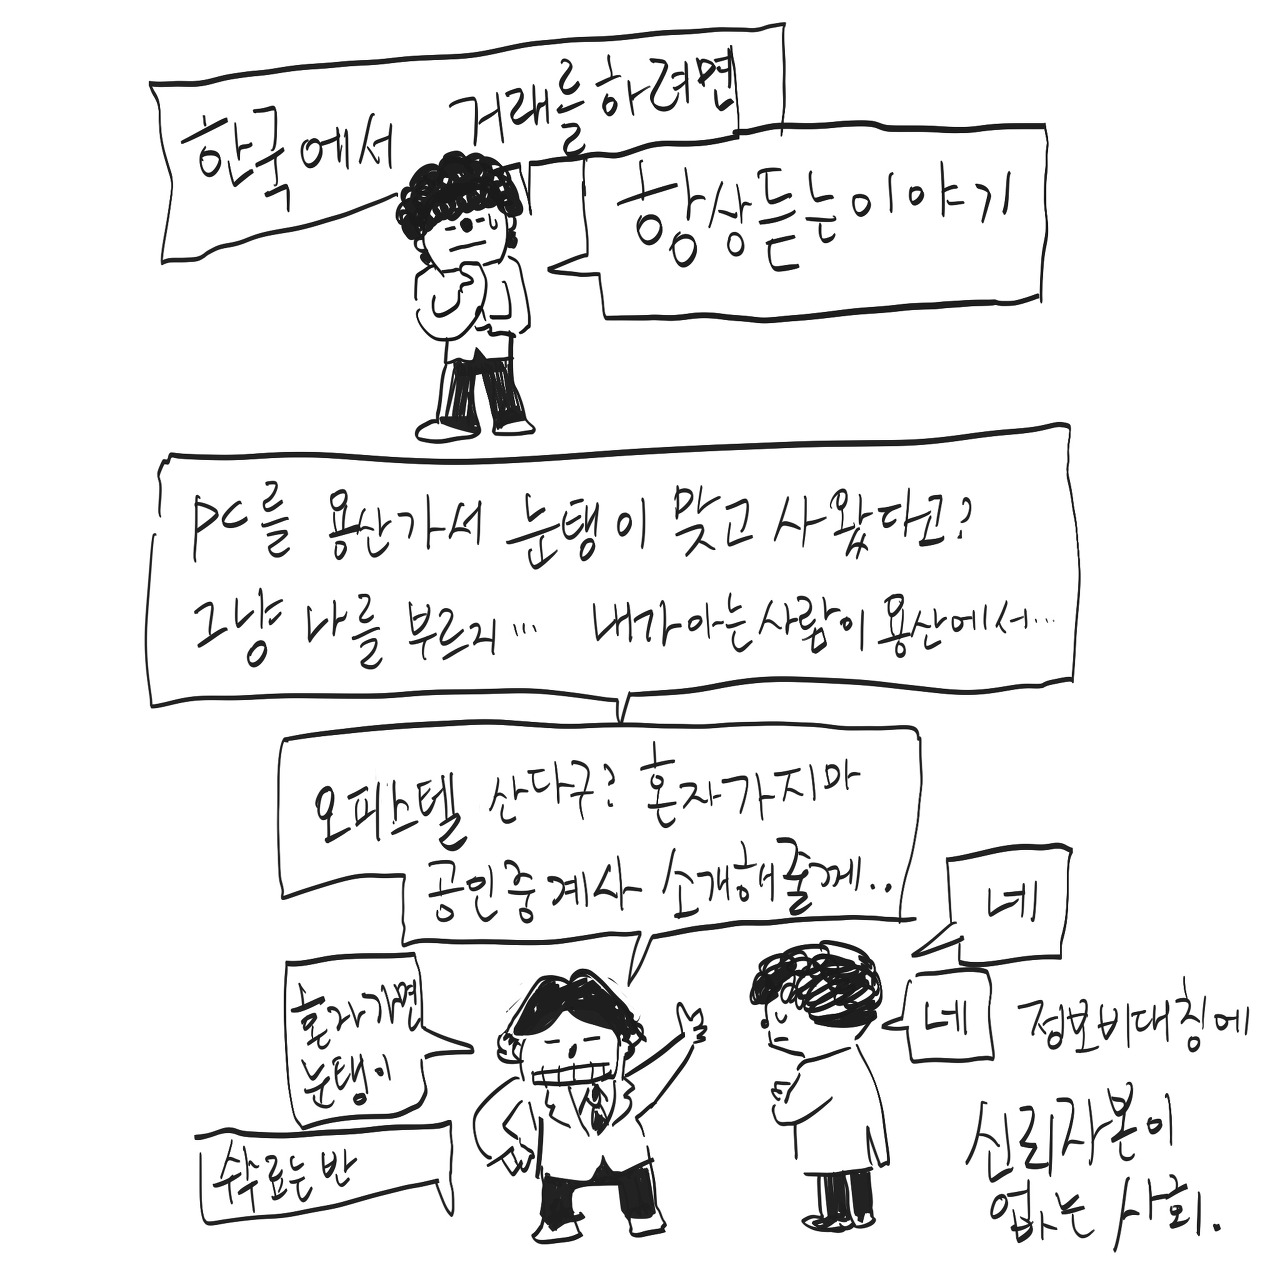 한국에서 거래를하려면
항상듣는이야기
PC를 용산가서 눈탱이 맞고 사왔다고?
그냥 나를 부르지... 내가아는사람이 용산에서...
오피스텔 산다구? 혼자가지마
공인중계사 소개해줄께..
네
네
혼자가면
눈탱이
수수료는 반
정보비대칭에
신뢰자본이
없는 사회.